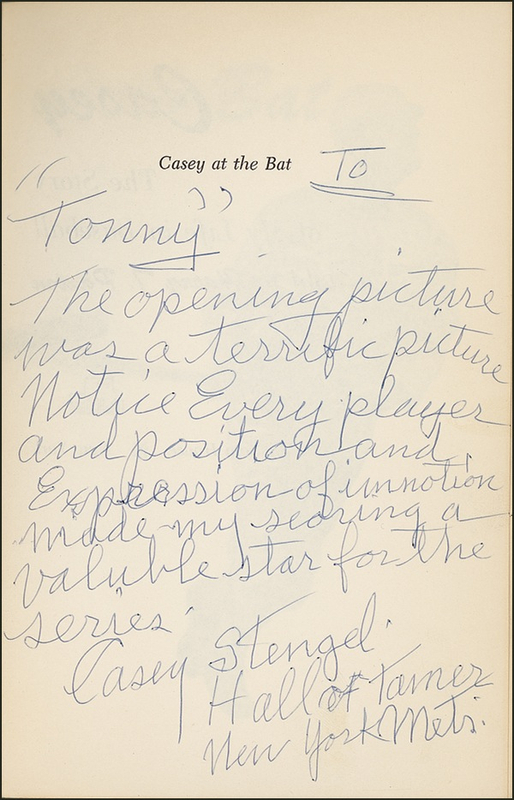 Casey at the Bat To
"Tonny"
The opening picture
was a terrific picture
Notice Every player
and position and
Expression of inmotion
made my scoring a
valuble star for the
series.
Casey Stengel.
Hall of Famer
New York Mets.